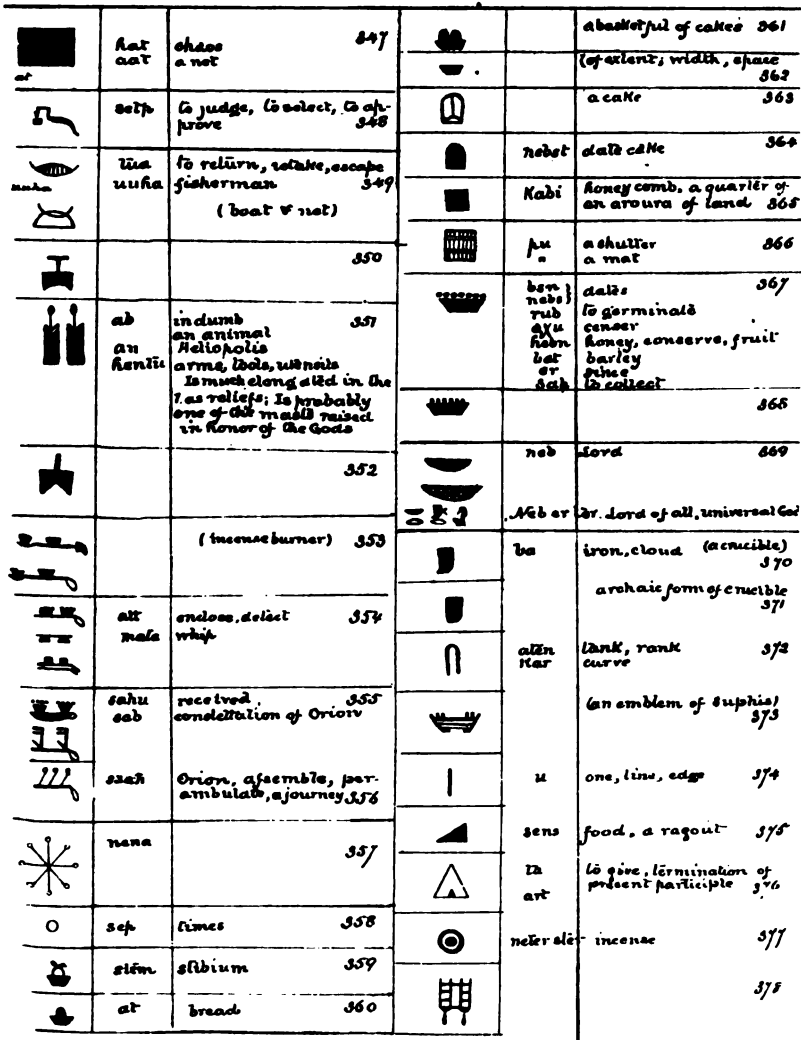 hat chaos 347
aat a not
at
setp to judge, to select, to ap-
prove 348
tua to return, retake, escape
uuha fisherman 349
uuha
(boat & net)
350
ab in dumb 351
an animal
an Heliopolis
hentu arms, tools, utensils
Is much elongated in the
bas reliefs; Is probably
one of the masts raised
in honor of the Gods
352
(incense burner) 353
att enclose, detect 354
mate whip
sahu received 355
sab constellation of Orion
szah Orion, assemble, per-
ambulate, a journey 356
nena
357
sep times 358
stem stibium 359
at bread 360
a basketful of cakes 361
(of extent; width, space
362
a cake 363
nebst date cake 364
Kabi honey comb, a quarter of
an aroura of land 365
pu a shutter 366
" a mat
ben } dates 367
nebs}
rub to germinate
ayu censer
hebn honey, conserve, fruit
bet barley
er since
sab to collect
368
neb Lord 369
Neb er dr. Lord of all, universal God
ba iron, cloud (a crucible)
370
archaic form of crucible
371
aten tank, rank 372
Kar curve
(an emblem of Suphis)
373
u one, line, edge 374
sens food, a ragout 375
ta to give, termination of
art present participle 376
neter ster incense 377
378